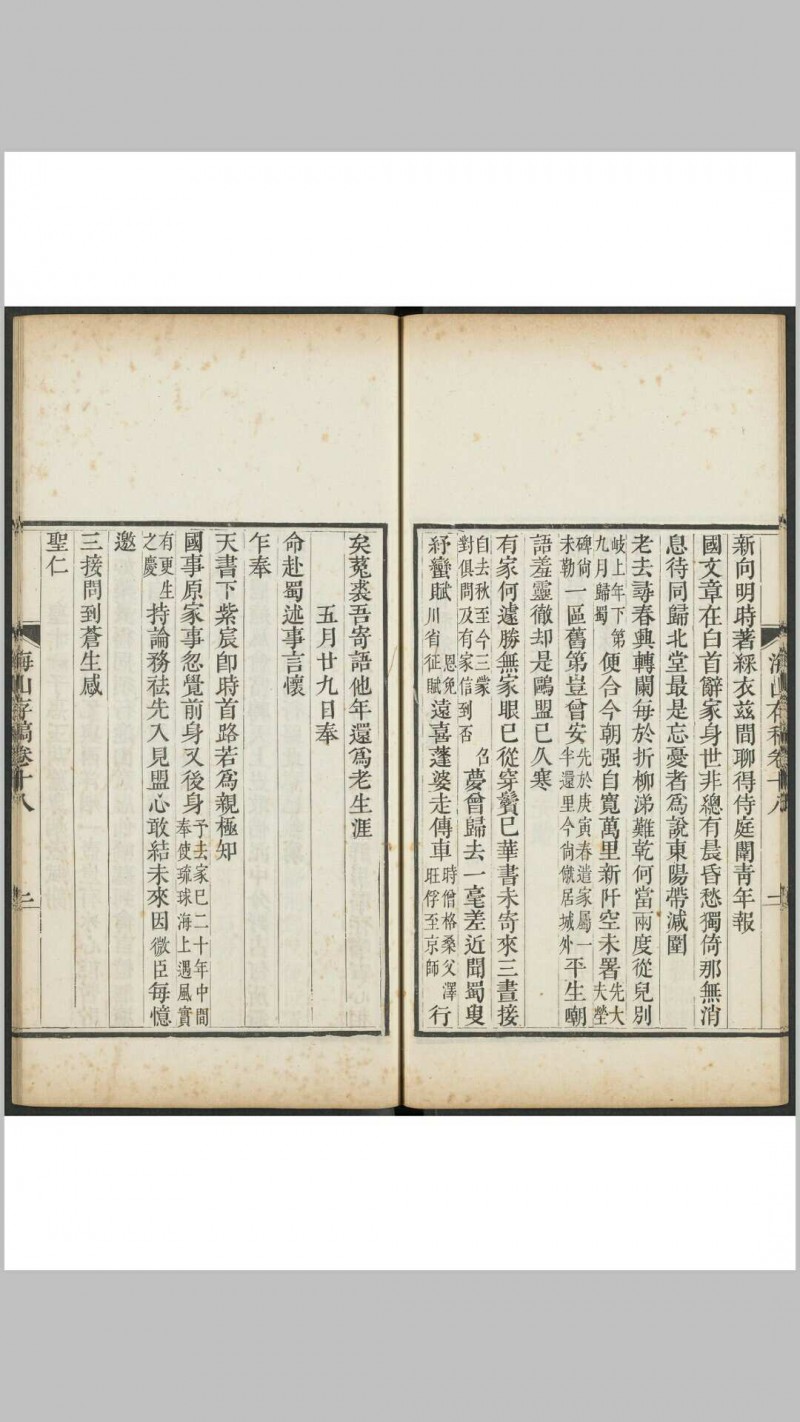 新向明時著綵衣茲間聊得侍庭闈靑年報
國文章在白首辭家身世非總有晨昏愁獨倚那無消
息待同歸北堂最是忘憂者爲說東陽帶減圍
老去尋春興轉闌每於折柳涕難乾何當兩度從兒別
岐上年下第
九月歸蜀
便合今朝强自寬萬里新阡空未署
先大
夫塋
碑尙
未勒
一區舊第豈曾安
先於庚寅春遣家屬一
半還里今尙僦居城外
平生嘲
語羞靈徹却是鷗盟已久寒
有家何遽勝無家眼已從穿鬢已華書未寄來三晝接
自去秋至今三蒙
召
對俱問及有家信到否
夢曾歸去一毫差近聞蜀叟
紓蠻賦
恩免
川省征賦
遠喜蓬婆走傳車
時僧格桑父澤
旺俘至京師
行
海山存稿卷十八
二
矣菟裘吾寄語他年還爲老生涯
五月廿九日奉
命赴蜀述事言懷
乍奉
天書下紫宸卽時首路若爲親極知
國事原家事忽覺前身又後身
予去家已二十年中間
奉使琉球海上遇風實
有更生
之慶
持論務祛先入見盟心敢結未來因
微臣
每憶
邀
三接問到蒼生感
聖仁
海山存稿卷十八
三